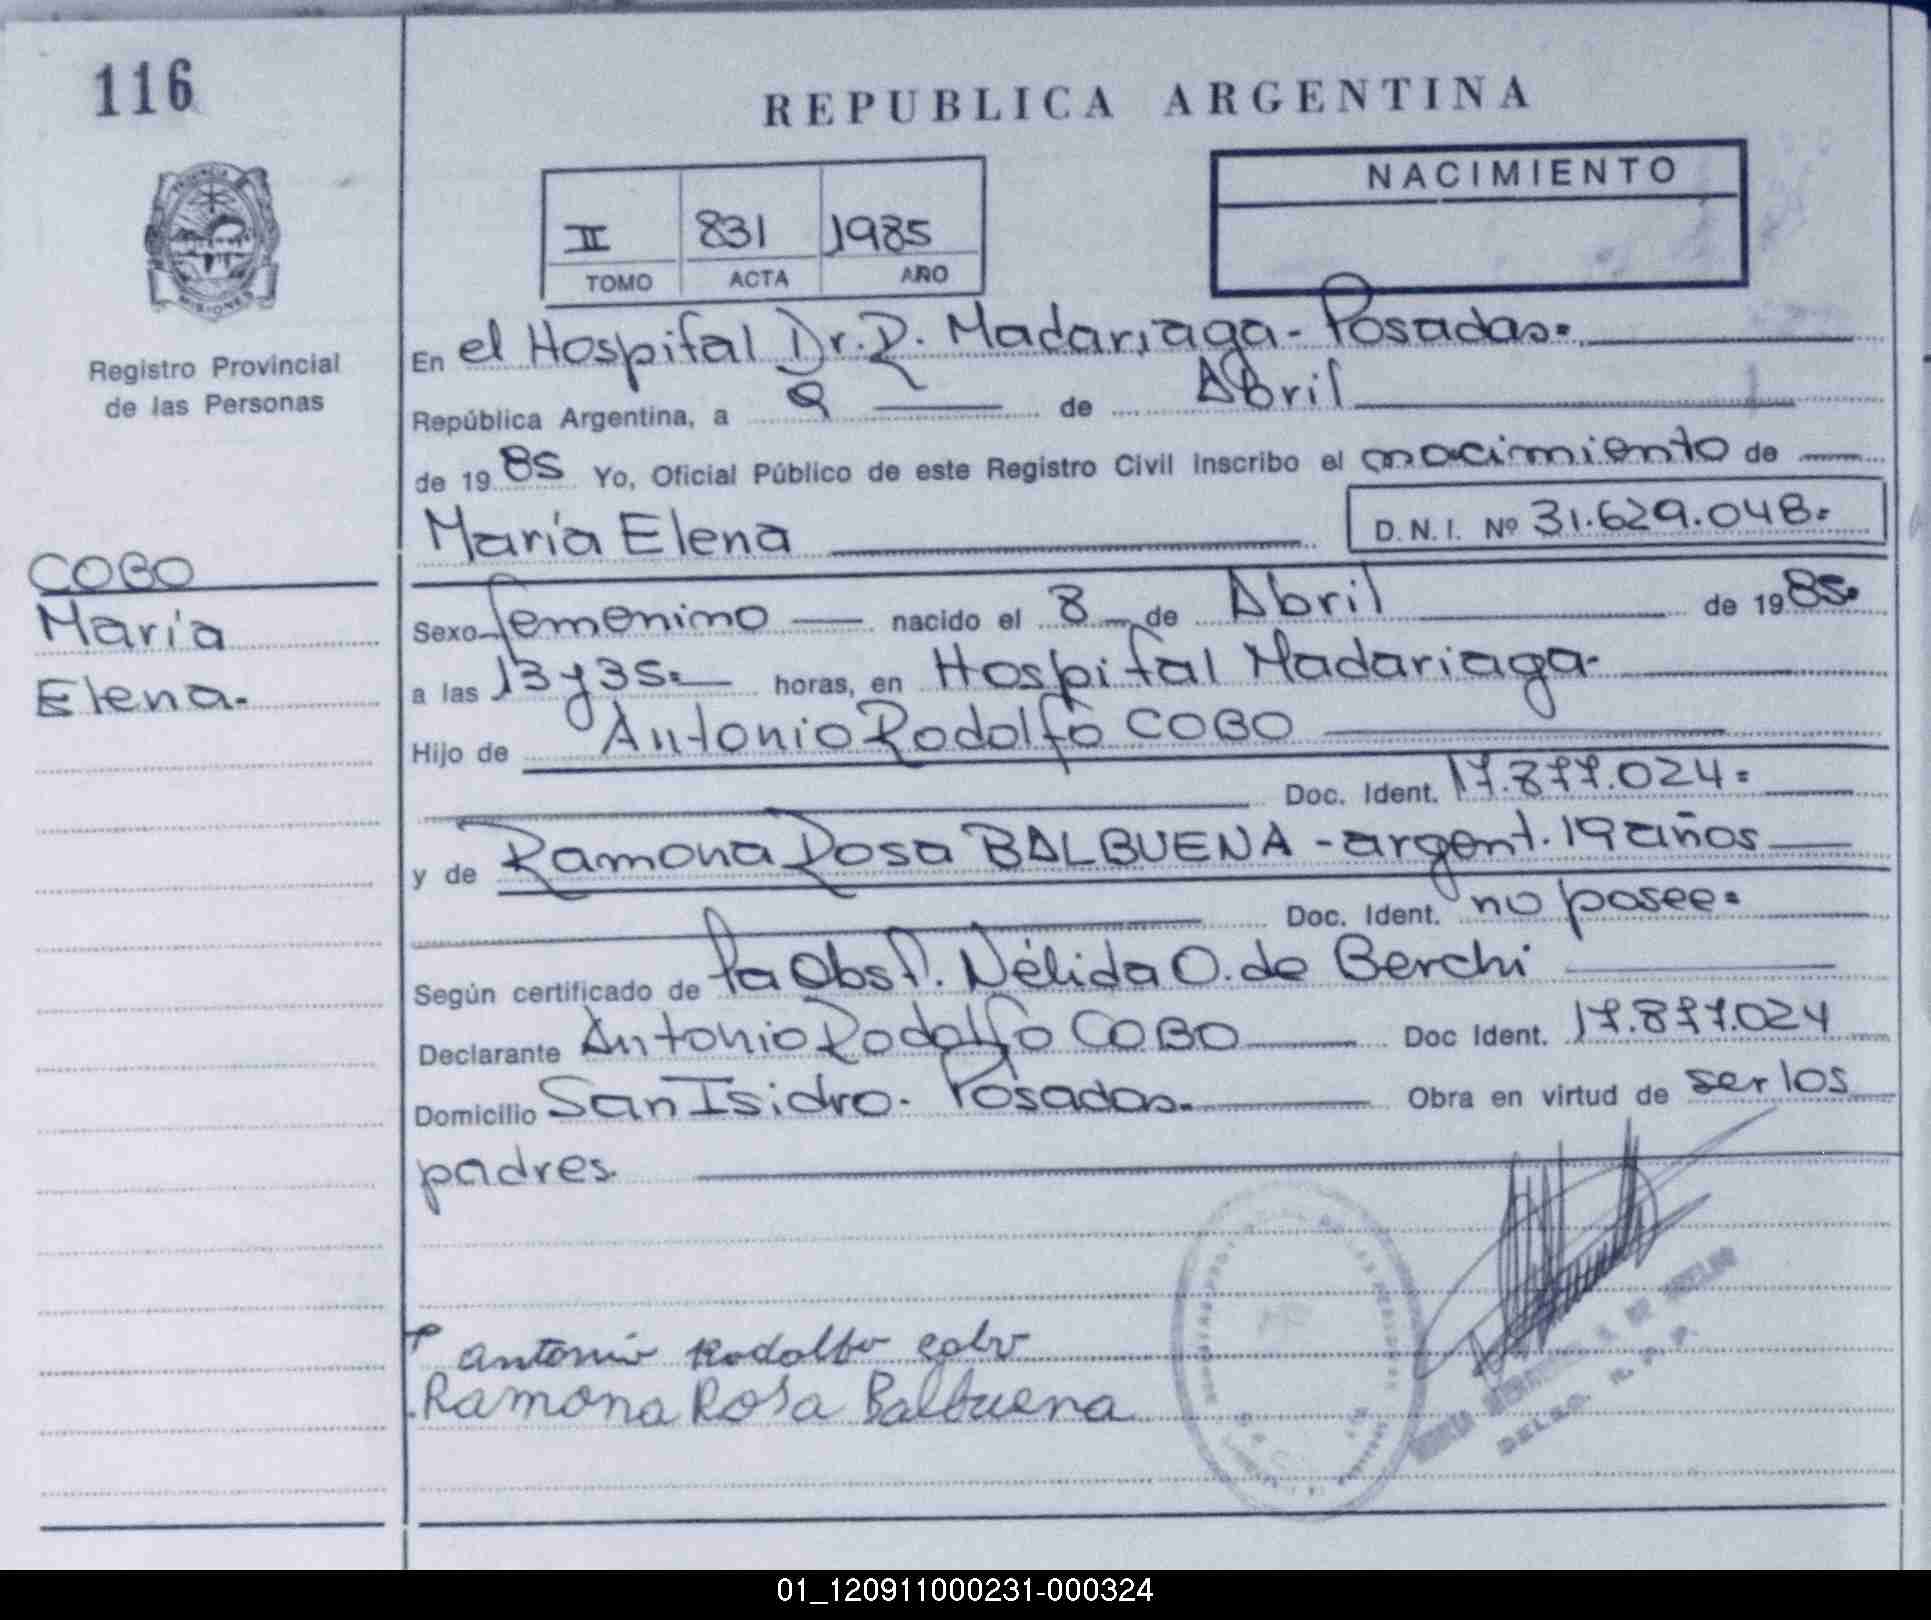 116
REPUBLICA ARGENTINA
NACIMIENTO
II 831 1985
TOMO ACTA AÑO
MISIONES
Registro Provincial
de las Personas
En el Hospital Dr. R. Madariaga - Posadas.
República Argentina, a 9 de Abril
de 1985 Yo, Oficial Público de este Registro Civil Inscribo el nacimiento de
María Elena D.N.I. Nº 31.629.048=
COBO
María
Elena.
Sexo femenino nacido el 8 de Abril de 1985.
a las 13 y 35= horas, en Hospital Madariaga-
Hijo de Antonio Rodolfo COBO
Doc. Ident. 17.877.024=
y de Ramona Rosa BALBUENA - argent. 19 años
Doc. Ident. no posee=
Según certificado de la Obst. Nélida O. de Berchi
Declarante Antonio Rodolfo COBO Doc Ident. 17.877.024
Domicilio San Isidro. Posadas. Obra en virtud de ser los
padres.
Antonio Rodolfo Cobo
Ramona Rosa Balbuena
DELEG. R. P. P.
01_120911000231-000324